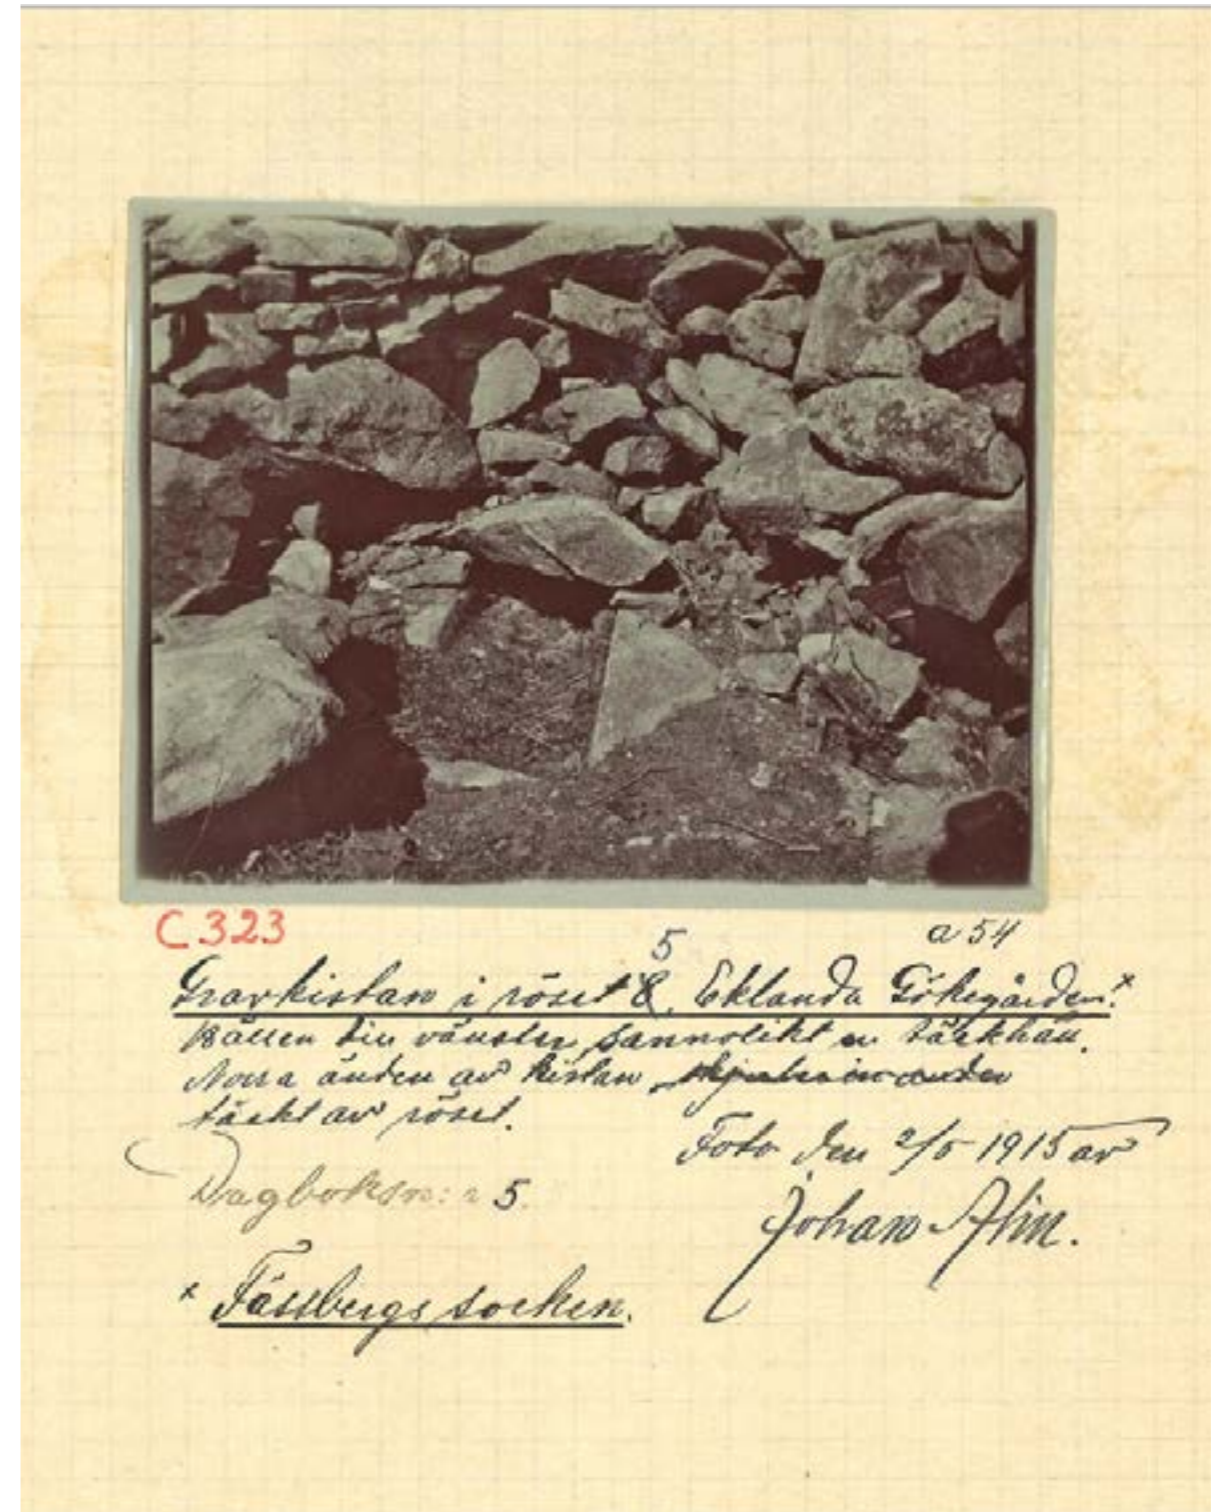 C 323
a 54
5
Gravkistan i röset 8, Eklanda Gökegården.x
Hällen till vänster sannolikt en täckhäll.
Norra änden av kistan
täckt av röset.
Foto den 2/5 1915 av
Dagboksn:r 5.
Johan Alin.
x Fässbergs socken.